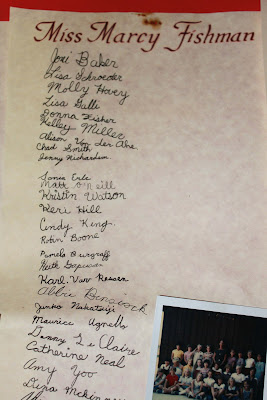 Miss Marcy Fishman
Joni Baker
Lisa Schroeder
Molly Hovey
Lisa Galli
Donna Fisher
Kelley Miller
Alison Von der Ahe
Chad Smith
Jenny Richardson
Sonia Erle
Matt O'Neill
Kristin Watson
Keri Hill
Cindy King
Robin Boone
Pamela Burgraff
Keith
Karl Van Rossen
Abbie
Junko
Maurice Ugnello
Danny LeClaire
Catherine Neal
Amy Yoo
McKinney